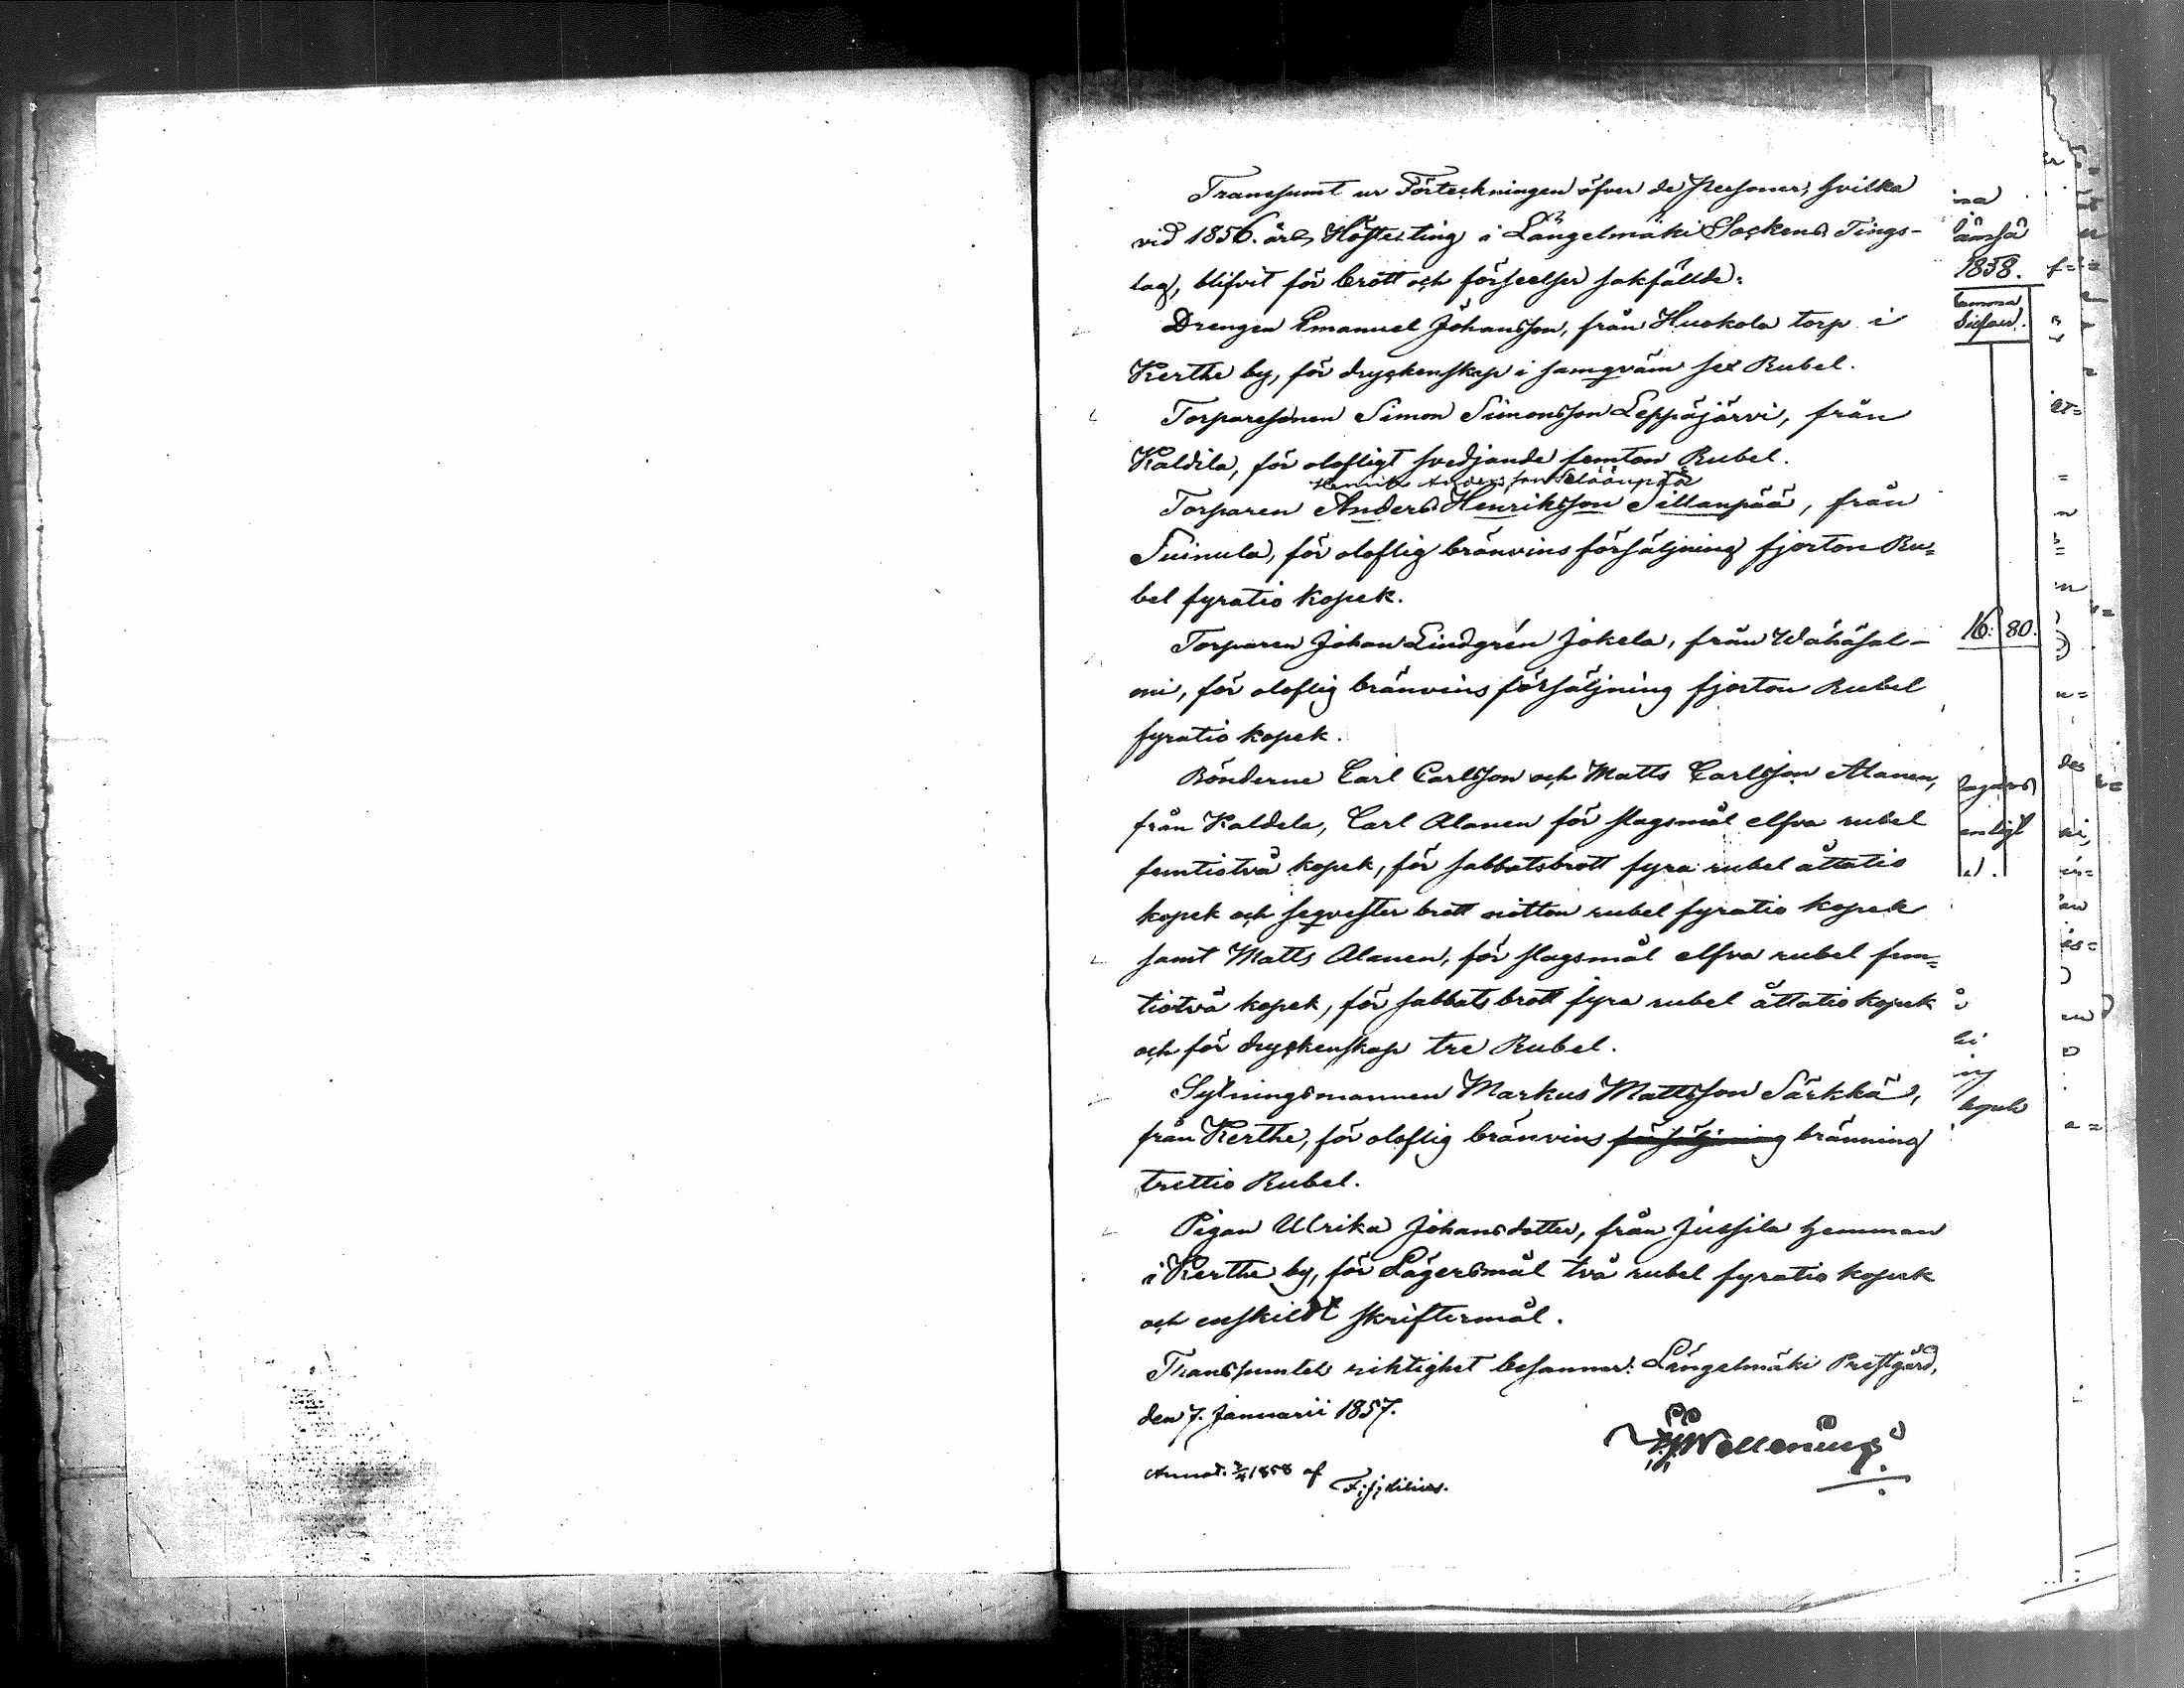 Transsumt ur Förteckningen öfver de Personer, hvilka
vid 1856. års Höste ting i Längelmäki Sockens Tings-
lag, blifvit för brott och förseelser sakfällde:
Drengen Emanuel Johansson, från Huokola torp i
Kerthe by, för dryckenskap i samqväm sex Rubel.
Torparesonen Simon Simonsson Leppäjärvi, från
Kaldila, för olofligt svedjande femton Rubel.
Henrik Andersson
Torparen Anders Henriksson Sillanpää, från
Suinula, för oloflig bränvins försäljning fjorton Ru=
bel fyratio kopek.
Torparen Johan Lindgrén Jokela, från Wähäsal-
mi, för oloflig bränvins försäljning fjorton Rubel
fyratio kopek.
Bönderne Carl Carlsson och Matts Carlsson Alanen,
från Kaldela, Carl Alanen för slagsmål elfva rubel
femtiotvå kopek, för sabbatsbrott fyra rubel åttatio
kopek och seqvester brott nitton rubel fyratio kopek
samt Matts Alanen, för slagsmål elfva rubel fem=
tiotvå kopek, för sabbats brott fyra rubel åttatio kopek
och för dryckenskap tre Rubel.
Sytningsmannen Markus Mattsson Särkkä,
från Kerthe, för oloflig bränvins försäljning bränning
trettio Rubel.
Pigan Ulrika Johansdotter, från Jussila hemman
i Kerthe by, för Lägersmål två rubel fyratio kopek
och enskildt skriftermål.
Transsumtets riktighet besannar: Längelmäki Prestgård,
den 7. Januarii 1857.
Wallenius
Annot. 3/4 1858 af
1858.
16. 80.